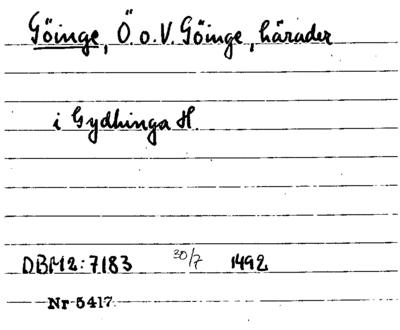 Göinge, Ö. o. V. Göinge, härader
i Gydhinga H.
DBM2:7183 30/7 1492
Nr 5417.